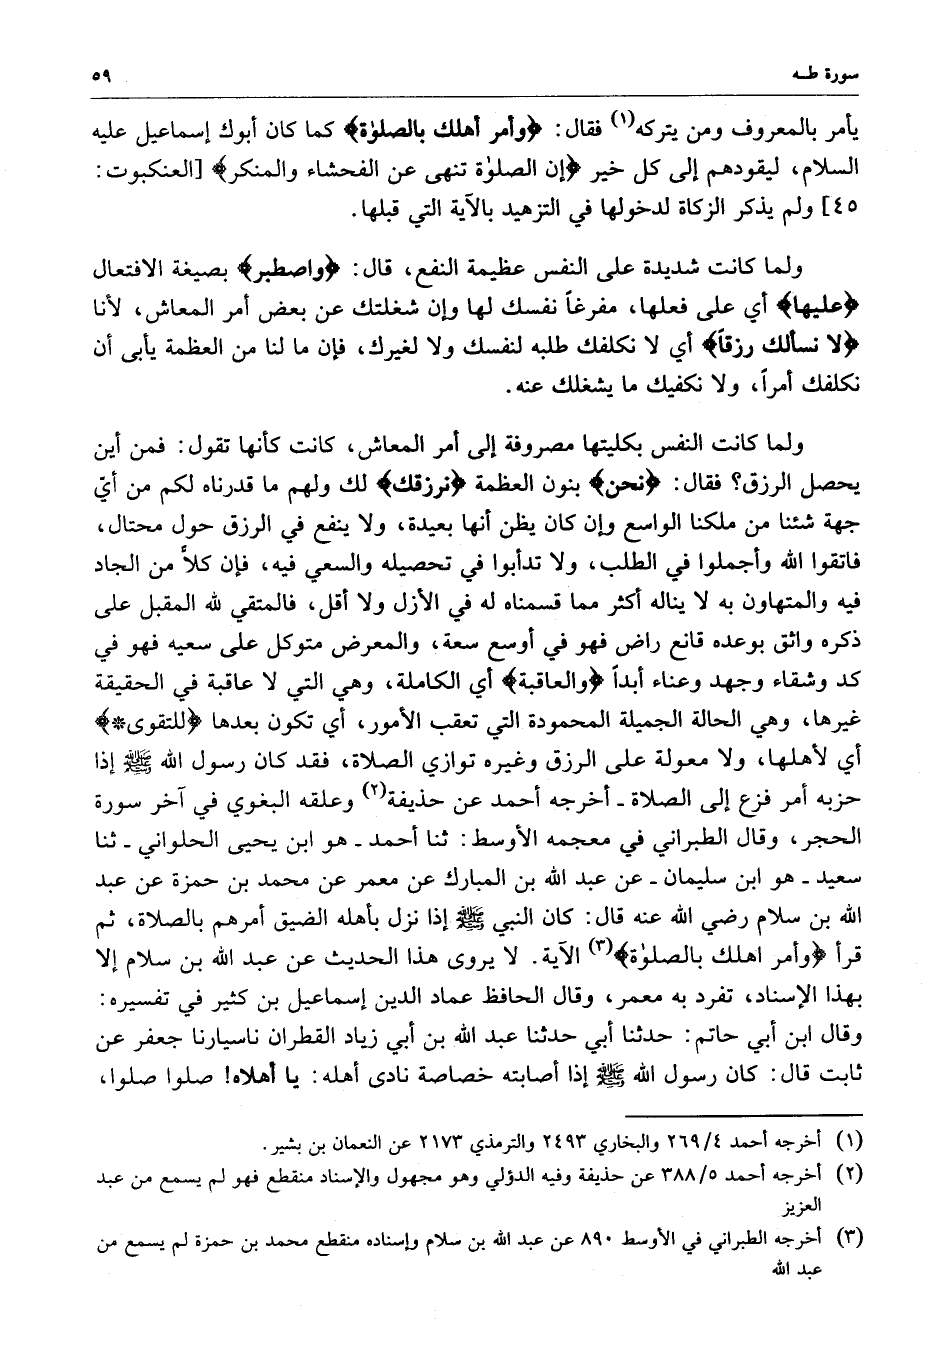 سورة طـه
٥٩
يأمر بالمعروف ومن يتركه(١) فقال: ﴿وأمر أهلك بالصلوٰة﴾ كما كان أبوك إسماعيل عليه
السلام، ليقودهم إلى كل خير ﴿إن الصلوٰة تنهى عن الفحشاء والمنكر﴾ [العنكبوت:
٤٥] ولم يذكر الزكاة لدخولها في التزهيد بالآية التي قبلها.
ولما كانت شديدة على النفس عظيمة النفع، قال: ﴿واصطبر﴾ بصيغة الافتعال
﴿عليها﴾ أي على فعلها، مفرغاً نفسك لها وإن شغلتك عن بعض أمر المعاش، لأنا
﴿لا نسألك رزقاً﴾ أي لا نكلفك طلبه لنفسك ولا لغيرك، فإن ما لنا من العظمة يأبى أن
نكلفك أمراً، ولا نكفيك ما يشغلك عنه.
ولما كانت النفس بكليتها مصروفة إلى أمر المعاش، كانت كأنها تقول: فمن أين
يحصل الرزق؟ فقال: ﴿نحن﴾ بنون العظمة ﴿نرزقك﴾ لك ولهم ما قدرناه لكم من أيّ
جهة شئنا من ملكنا الواسع وإن كان يظن أنها بعيدة، ولا ينفع في الرزق حول محتال،
فاتقوا الله وأجملوا في الطلب، ولا تدأبوا في تحصيله والسعي فيه، فإن كلاًّ من الجاد
فيه والمتهاون به لا يناله أكثر مما قسمناه له في الأزل ولا أقل، فالمتقي لله المقبل على
ذكره واثق بوعده قانع راض فهو في أوسع سعة، والمعرض متوكل على سعيه فهو في
كد وشقاء وجهد وعناء أبداً ﴿والعاقبة﴾ أي الكاملة، وهي التي لا عاقبة في الحقيقة
غيرها، وهي الحالة الجميلة المحمودة التي تعقب الأمور، أي تكون بعدها ﴿للتقوى*﴾
أي لأهلها، ولا معولة على الرزق وغيره توازي الصلاة، فقد كان رسول الله ﷺ إذا
حزبه أمر فزع إلى الصلاة ـ أخرجه أحمد عن حذيفة(٢) وعلقه البغوي في آخر سورة
الحجر، وقال الطبراني في معجمه الأوسط: ثنا أحمد ـ هو ابن يحيى الحلواني ـ ثنا
سعيد ـ هو ابن سليمان ـ عن عبد الله بن المبارك عن معمر عن محمد بن حمزة عن عبد
الله بن سلام رضي الله عنه قال: كان النبي ﷺ إذا نزل بأهله الضيق أمرهم بالصلاة، ثم
قرأ ﴿وأمر اهلك بالصلوٰة﴾(٣) الآية. لا يروى هذا الحديث عن عبد الله بن سلام إلا
بهذا الإسناد، تفرد به معمر، وقال الحافظ عماد الدين إسماعيل بن كثير في تفسيره:
وقال ابن أبي حاتم: حدثنا أبي حدثنا عبد الله بن أبي زياد القطران ناسيارنا جعفر عن
ثابت قال: كان رسول الله ﷺ إذا أصابته خصاصة نادى أهله: يا أهلاه! صلوا صلوا،
(١) أخرجه أحمد ٢٦٩/٤ والبخاري ٢٤٩٣ والترمذي ٢١٧٣ عن النعمان بن بشير.
(٢) أخرجه أحمد ٣٨٨/٥ عن حذيفة وفيه الدؤلي وهو مجهول والإسناد منقطع فهو لم يسمع من عبد
العزيز
(٣) أخرجه الطبراني في الأوسط ٨٩٠ عن عبد الله بن سلام وإسناده منقطع محمد بن حمزة لم يسمع من
عبد الله